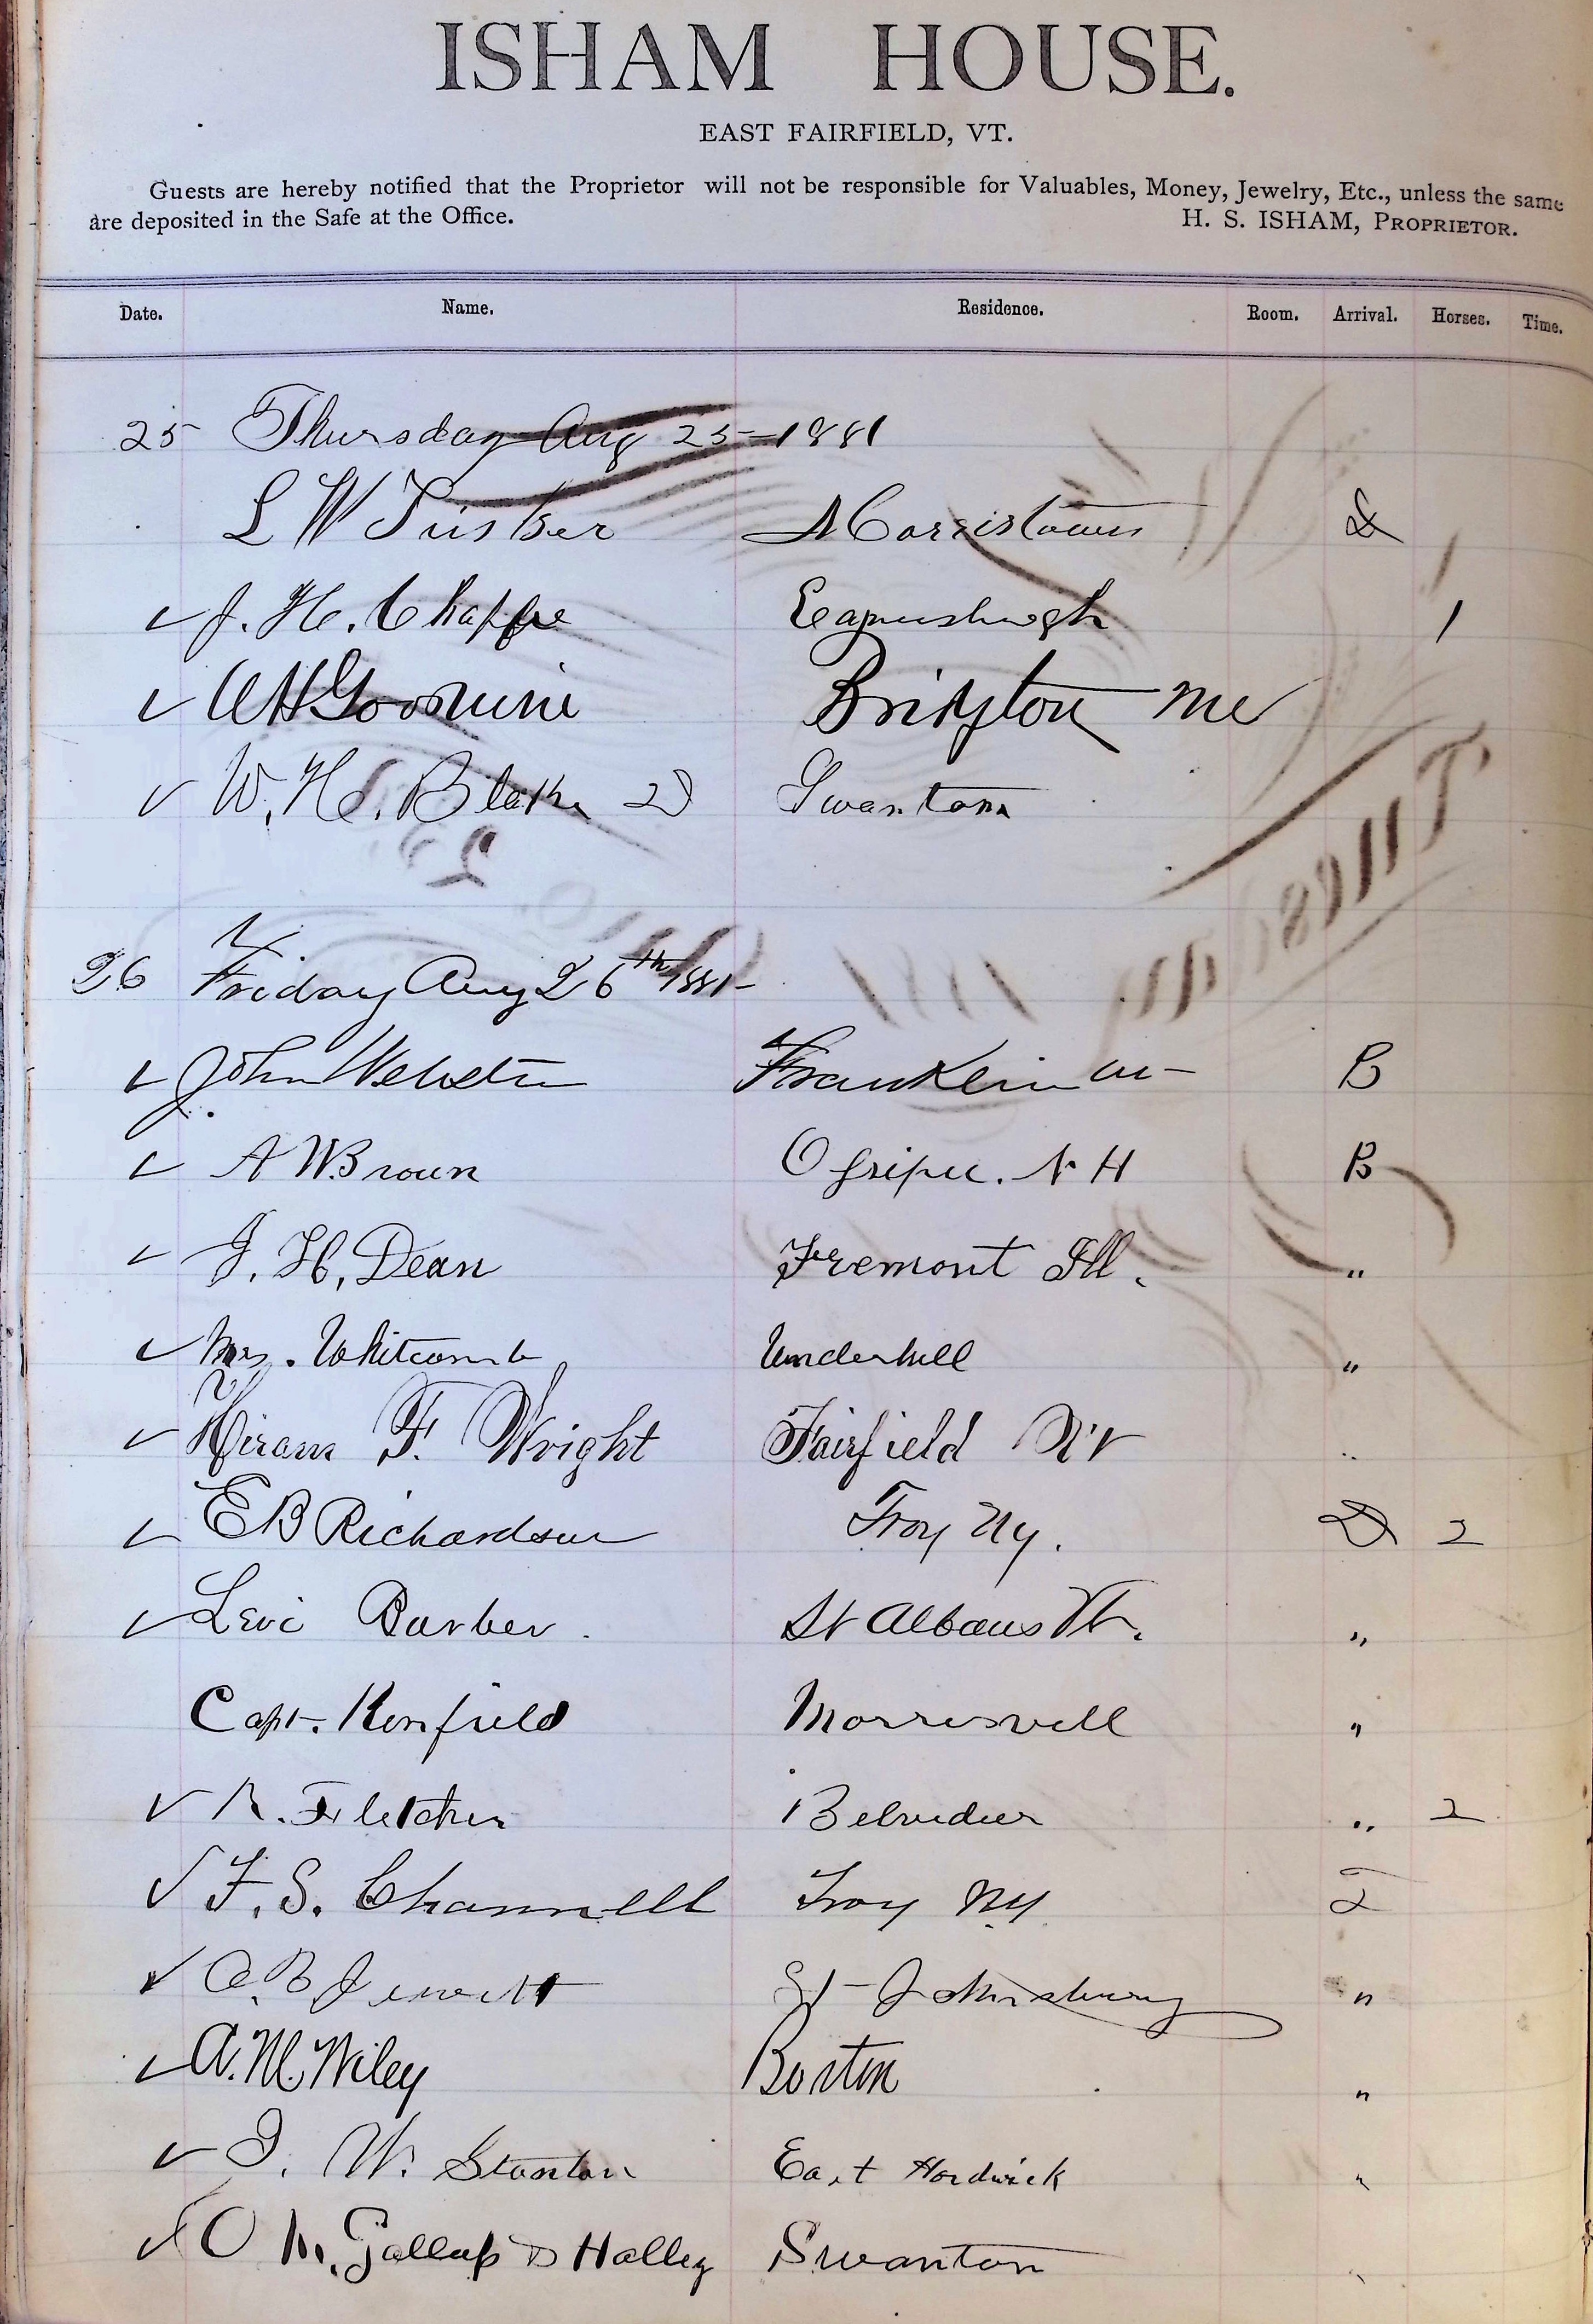 ISHAM HOUSE.
EAST FAIRFIELD, VT.
Guests are hereby notified that the Proprietor will not be responsible for Valuables, Money, Jewelry, Etc., unless the same
are deposited in the Safe at the Office.
H. S. ISHAM, PROPRIETOR.
Date. Name. Residence. Room. Arrival. Horses. Time.
25 Thursday Aug 25-1881
L W Morristown D
J. H. 1
Me
✓ W. H. Blake D Swanton
26 Friday Aug 26th 1881-
✓ John Webster Franklin B
✓ A W Brown Ossipee. N H B
✓ J. H. Dean Fremont Ill. "
✓ Mrs. Whitcomb Underhill "
✓ Hiram F. Wright Fairfield "
✓ E B Richardson Troy Ny. D 2
✓ Levi Barber. St Albans Vt. "
Capt. Kenfield Morrisvill "
✓ R. Fletcher Belvedier " 2
✓ F. S. Channell Troy NY
✓ St Johnsbury "
✓ A. M. Wiley Boston "
✓ W. Stanton East Hardwick "
✓ O M. Gallup D Halley Swanton